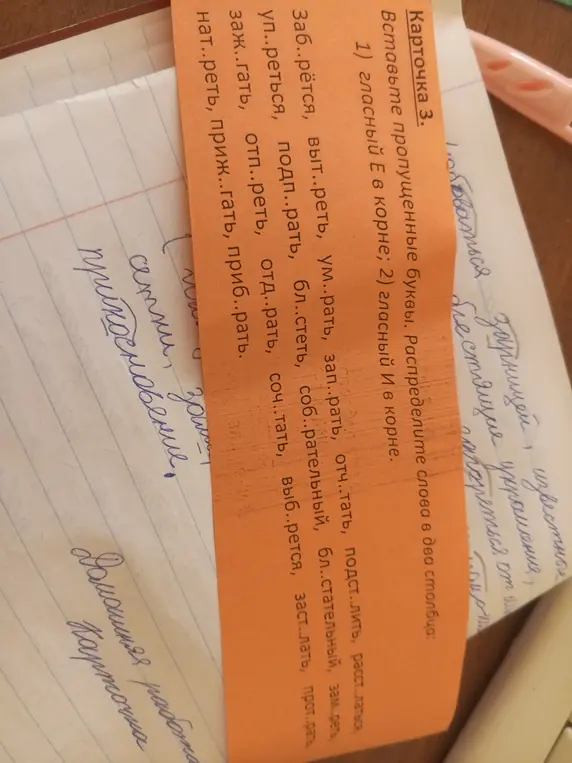 Карточка 3.
Вставьте пропущенные буквы. Распределите слова в два столбца:
1) гласный Е в корне; 2) гласный И в корне.
Заб..рётся, выт..реть, ум..рать, зап..рать, отч..тать, подст..лить, расст..латься,
уп..реться, подп..рать, бл..стеть, соб..рательный, бл..стательный, зам..реть,
заж..гать, отп..реть, отд..рать, соч..тать, выб..рется, заст..лать, прот..рать,
нат..реть, приж..гать, приб..рать.
зарницей, известное
блестящие украшения,
запереться от
сетки,
прикосновения,
Домашняя работа
Карточка